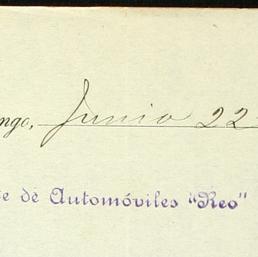 ngo, Junio 22
e de Automóviles "Reo"